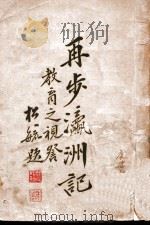 再步瀛洲記
教育之視察
松毓題